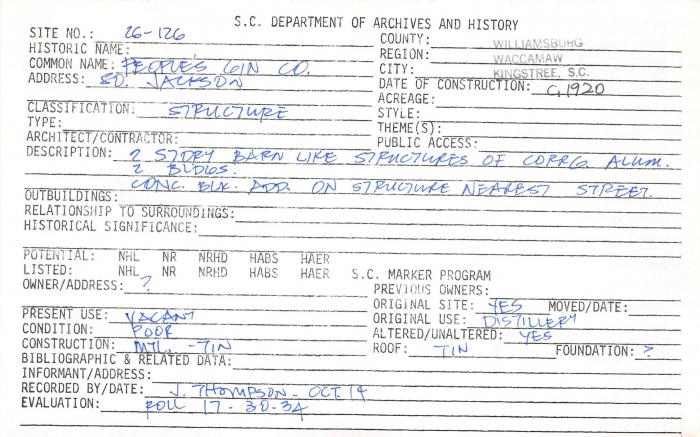 S.C. DEPARTMENT OF ARCHIVES AND HISTORY
SITE NO.: 26-126
HISTORIC NAME:
COMMON NAME: PEOPLES GIN CO.
ADDRESS: SO. JACKSON
COUNTY: WILLIAMSBURG
REGION: WACCAMAW
CITY: KINGSTREE, S.C.
DATE OF CONSTRUCTION: C.1920
ACREAGE:
CLASSIFICATION: STRUCTURE
STYLE:
TYPE:
THEME(S):
ARCHITECT/CONTRACTOR:
PUBLIC ACCESS:
DESCRIPTION: 2 STORY BARN LIKE STRUCTURES OF CORRG. ALUM.
2 BLDGS.
CONC. BLK. ADD. ON STRUCTURE NEAREST STREET.
OUTBUILDINGS:
RELATIONSHIP TO SURROUNDINGS:
HISTORICAL SIGNIFICANCE:
POTENTIAL: NHL NR NRHD HABS HAER
LISTED: NHL NR NRHD HABS HAER S.C. MARKER PROGRAM
OWNER/ADDRESS: ?
PREVIOUS OWNERS:
ORIGINAL SITE: YES MOVED/DATE:
PRESENT USE: VACANT
ORIGINAL USE: DISTILLERY
CONDITION: POOR
ALTERED/UNALTERED: YES
CONSTRUCTION: MTL. - TIN
ROOF: TIN FOUNDATION: ?
BIBLIOGRAPHIC & RELATED DATA:
INFORMANT/ADDRESS:
RECORDED BY/DATE: J. THOMPSON - OCT. 14
EVALUATION: ROLL 17 - 30-34